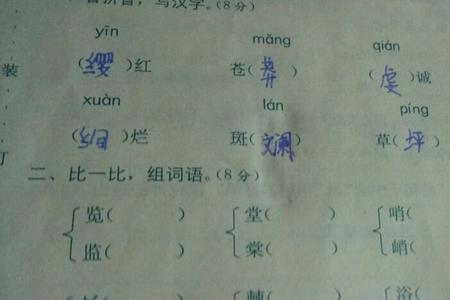 拼音，写汉字。(8分)
yīn mǎng qián
装 (缨)红 苍(莽) (虔)诚
xuàn lán píng
(绚)烂 斑(斓) 草(坪)
二、比一比，组词语。(8分)
览( ) 堂( ) 哨(
监( ) 棠( ) 峭(
浴(